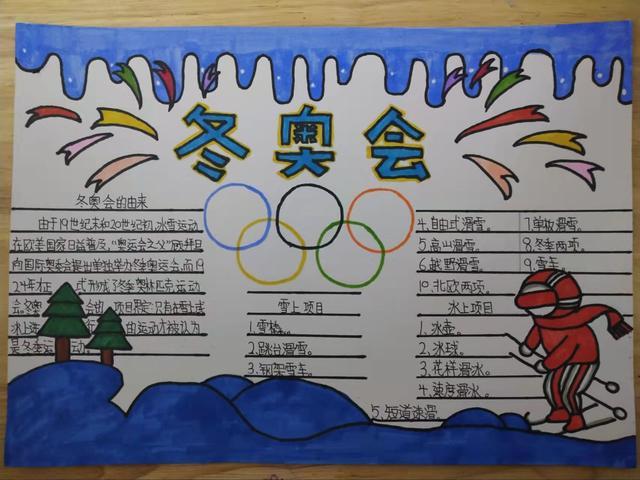 冬奥会
冬奥会的由来
由于19世纪末和20世纪初,冰雪运动
在欧美国家日益普及,"奥运会之父"顾拜旦
向国际奥委会提出单独举办冬季奥运会,而19
24年才正 式形成了冬季奥林匹克运动
会.冬奥 会的 项目限定只有在雪上或
冰上进 行 的运动才被认为
是冬季运 动。
雪上项目
1.雪橇。
2.跳台滑雪。
3.钢架雪车。
4.自由式滑雪。
5.高山滑雪。
6.越野滑雪。
7.单板滑雪。
8.冬季两项。
9.雪车。
10.北欧两项。
冰上项目
1.冰壶。
2.冰球。
3.花样滑冰。
4.速度滑冰。
5.短道速滑。